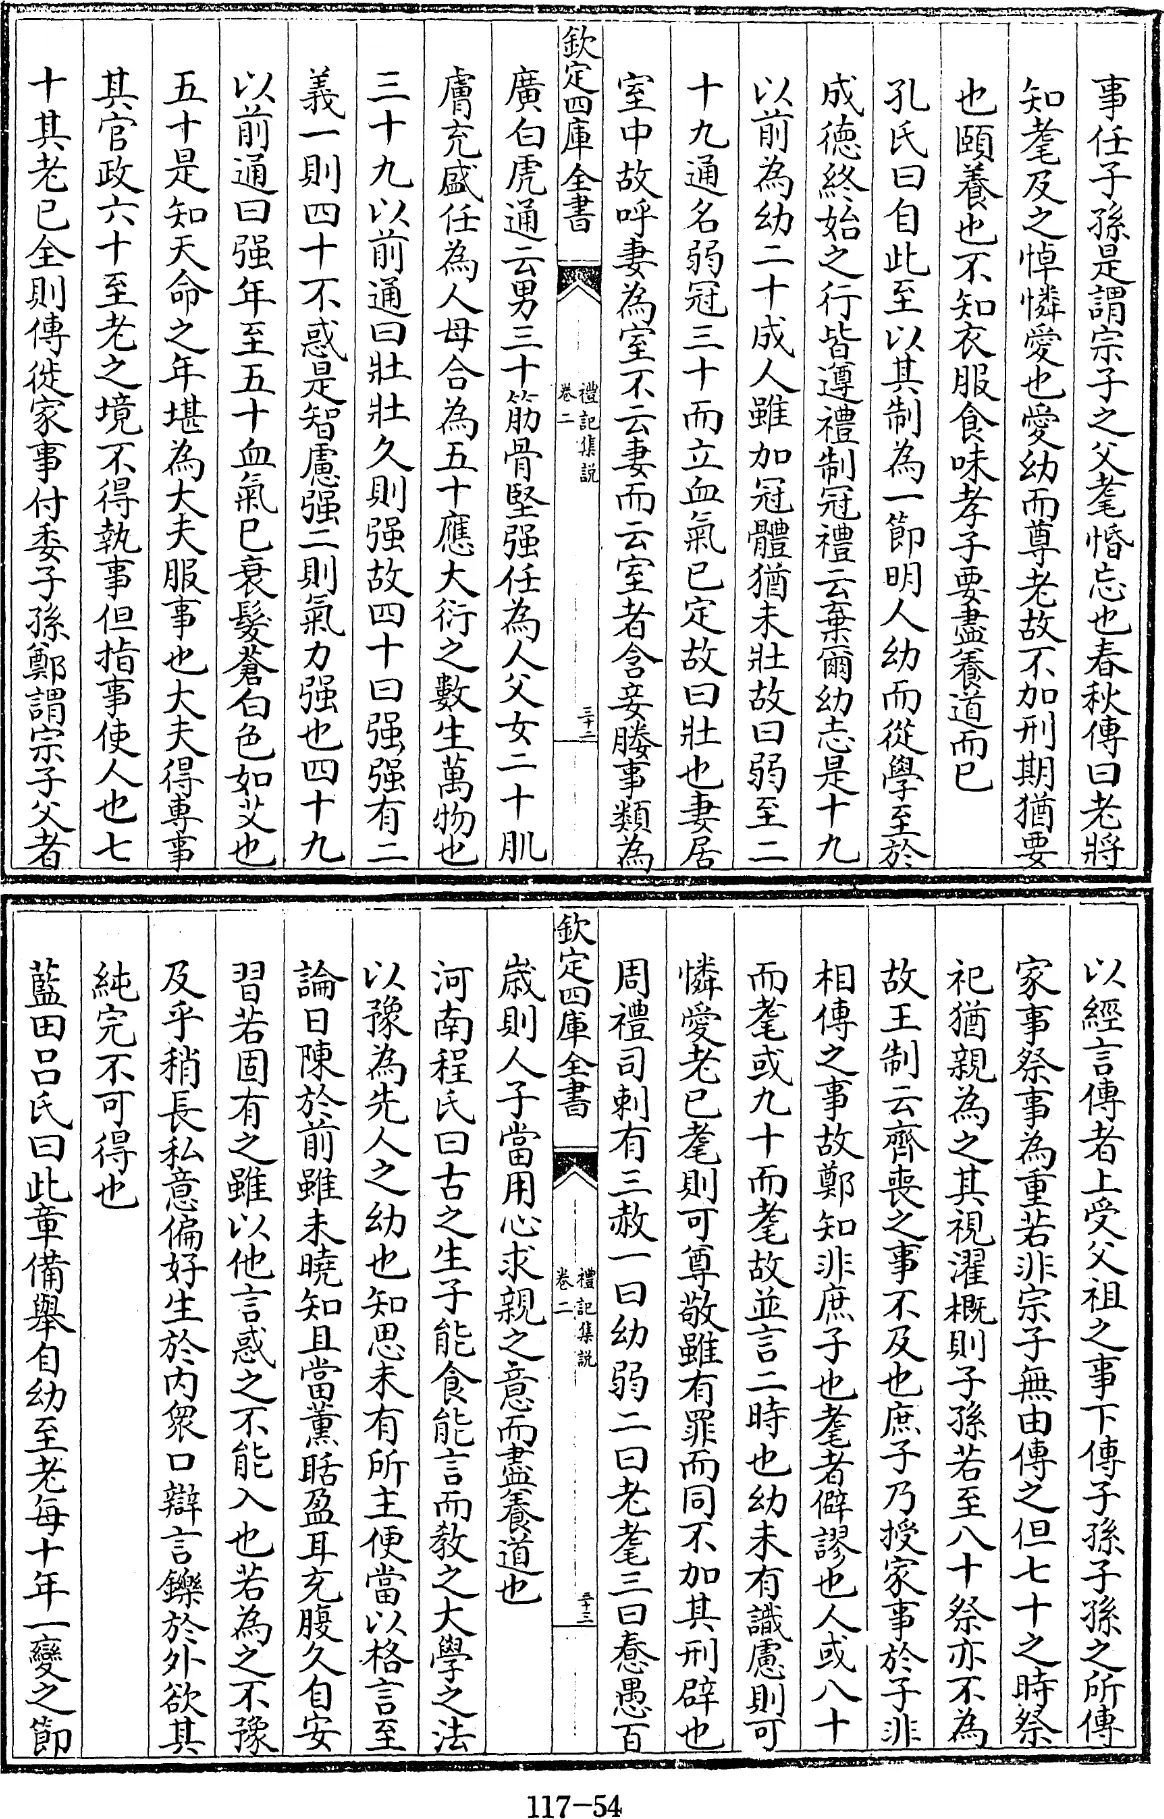 事任子孫是謂宗子之父耄惛忘也春秋傳曰老將
知耄及之悼憐愛也愛幼而尊老故不加刑期猶要
也頤養也不知衣服食味孝子要盡養道而已
孔氏曰自此至以其制為一節明人幼而從學至於
成德終始之行皆遵禮制冠禮云棄爾幼志是十九
以前為幼二十成人雖加冠體猶未壯故曰弱至二
十九通名弱冠三十而立血氣已定故曰壯也妻居
室中故呼妻為室不云妻而云室者含妾媵事類為
欽定四庫全書
禮記集說
卷二
三十二
廣白虎通云男三十筋骨堅强任為人父女二十肌
膚充盛任為人母合為五十應大衍之數生萬物也
三十九以前通曰壯壯久則强故四十曰强强有二
義一則四十不惑是智慮强二則氣力强也四十九
以前通曰强年至五十血氣已衰髮蒼白色如艾也
五十是知天命之年堪為大夫服事也大夫得專事
其官政六十至老之境不得執事但指事使人也七
十其老已全則傳徙家事付委子孫鄭謂宗子父者
以經言傳者上受父祖之事下傳子孫子孫之所傳
家事祭事為重若非宗子無由傳之但七十之時祭
祀猶親為之其視濯概則子孫若至八十祭亦不為
故王制云齊喪之事不及也庶子乃授家事於子非
相傳之事故鄭知非庶子也耄者僻謬也人或八十
而耄或九十而耄故並言二時也幼未有識慮則可
憐愛老已耄則可尊敬雖有罪而同不加其刑辟也
周禮司刺有三赦一曰幼弱二曰老耄三曰憃愚百
欽定四庫全書
禮記集說
卷二
三十三
歲則人子當用心求親之意而盡養道也
河南程氏曰古之生子能食能言而教之大學之法
以豫為先人之幼也知思未有所主便當以格言至
論日陳於前雖未曉知且當薰聒盈耳充腹久自安
習若固有之雖以他言惑之不能入也若為之不豫
及乎稍長私意偏好生於内衆口辯言鑠於外欲其
純完不可得也
藍田吕氏曰此章備舉自幼至老每十年一變之節
117-54